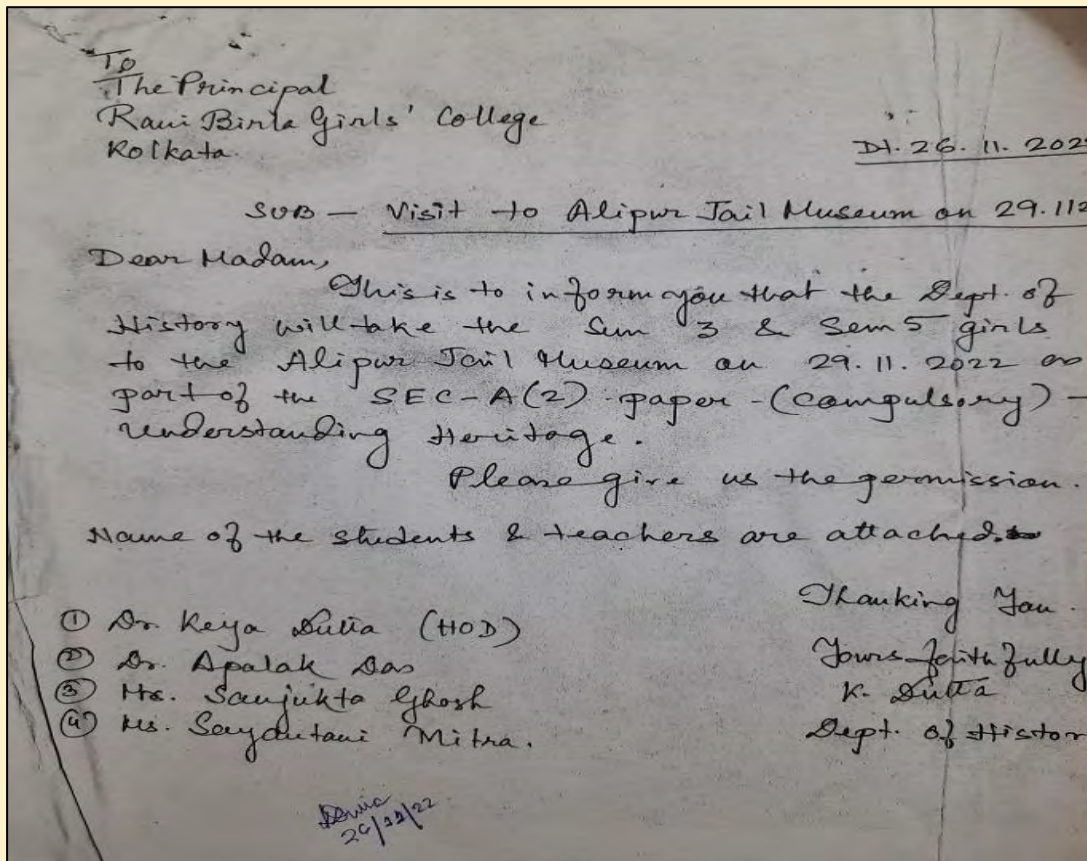 To
The Principal
Rani Birla Girls' College
Kolkata.
Dt. 26. 11. 202
SUB — Visit to Alipur Jail Museum on 29.112
Dear Madam,
This is to inform you that the Dept. of
History will take the Sem 3 & Sem 5 girls
to the Alipur Jail Museum on 29.11.2022 as
part of the SEC-A(2) paper - (Compulsory) -
Understanding Heritage.
Please give us the permission.
Name of the students & teachers are attached.
Thanking You.
① Dr. Keya Dutta (HOD)
② Dr. Apalak Das
③ Ms. Sanjukta Ghosh
④ Ms. Sayantani Mitra.
Yours faithfully
K. Dutta
Dept. of Histor